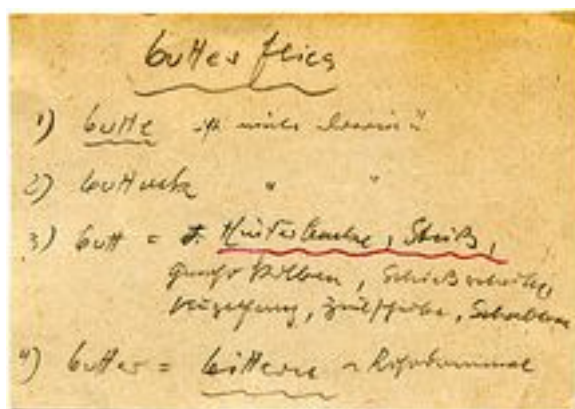 butterflies
1) butte ist nicht darin!
2) buttock " "
3) butt = f. Hinterbacke, Steiß,
Kolben, Schießscheibe,
Kugelfang, Zielscheibe,
4) butter = bittern ~ Rohrdommel